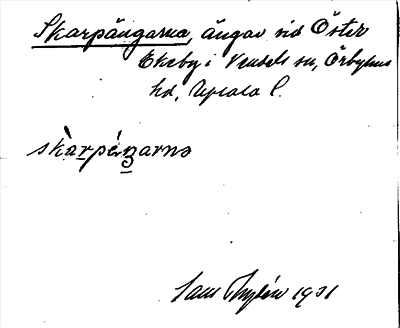 Skarpängarna, ängar vid Öster
Ekeby i Vendels sn, Örbyhus
hd, Upsala l.
skarpéŋarna
1931